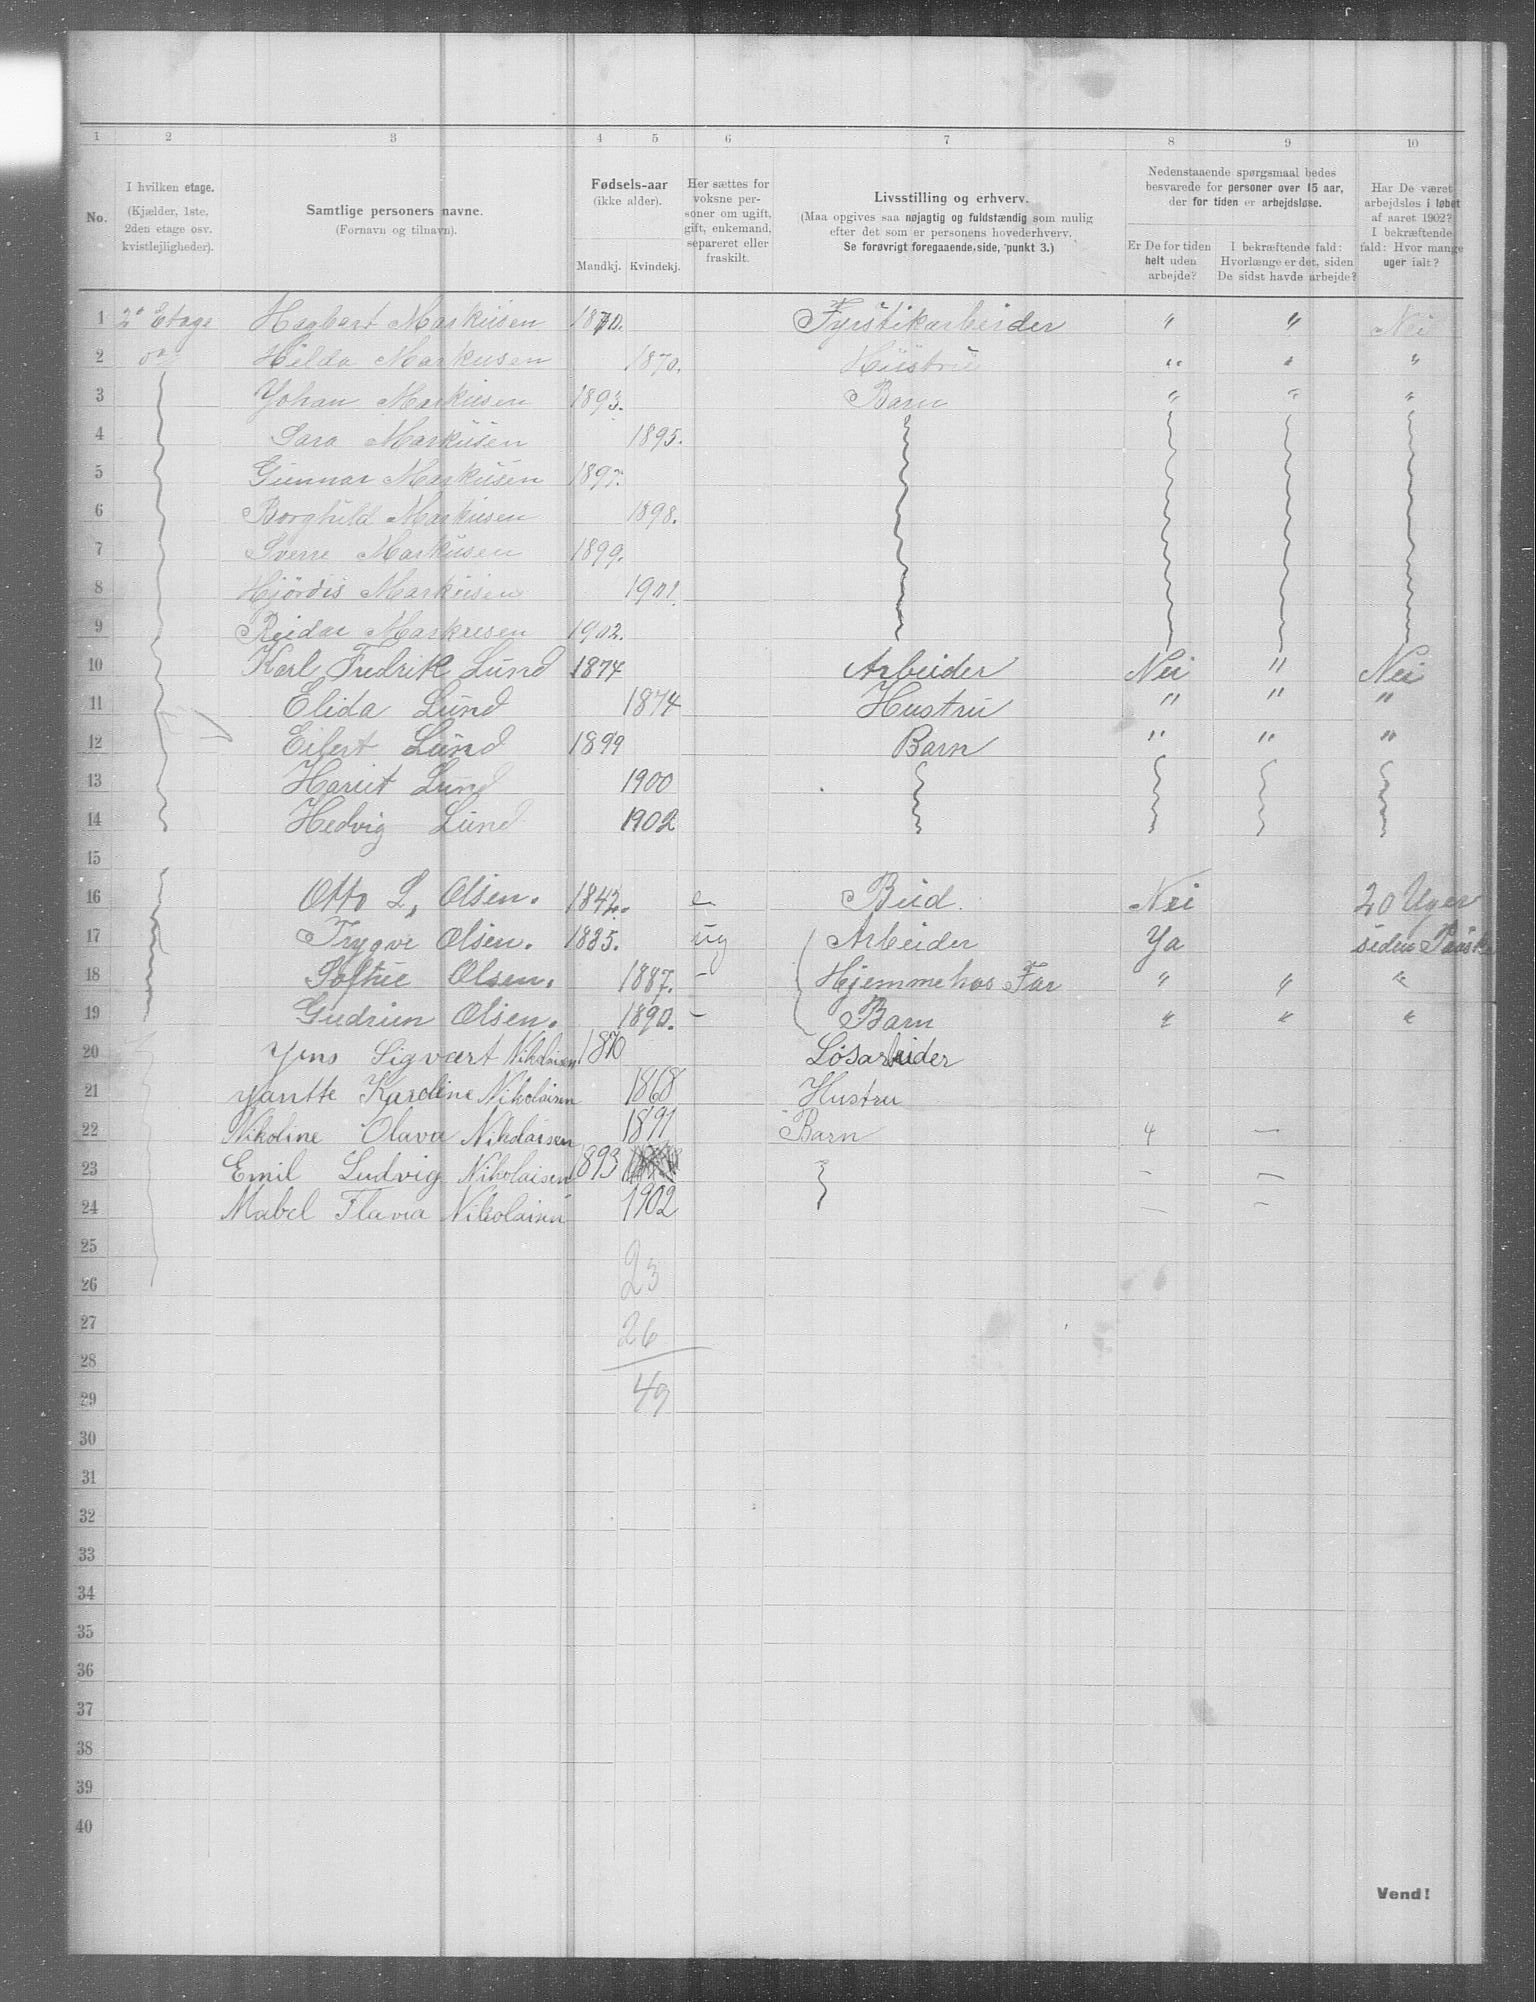 1 2 3 4 5 6 7 8 9 10
No.
I hvilken etage.
(Kjælder, 1ste,
2den etage osv.
kvistlejligheder).
Samtlige personers navne.
(Fornavn og tilnavn).
Fødsels-aar
(ikke alder).
Mandkj. Kvindekj.
Her sættes for
voksne per-
soner om ugift,
gift, enkemand,
separeret eller
fraskilt.
Livsstilling og erhverv.
(Maa opgives saa nøjagtig og fuldstændig som mulig
efter det som er personens hovederhverv.
Se forøvrigt foregaaende side, punkt 3.)
Nedenstaaende spørgsmaal bedes
besvarede for personer over 15 aar,
der for tiden er arbejdsløse.
Er De for tiden
helt uden
arbejde?
I bekræftende fald:
Hvorlænge er det, siden
De sidst havde arbejde?
Har De været
arbejdsløs i løbet
af aaret 1902?
I bekræftende
fald: Hvor mange
uger ialt?
1 2de Etage Hagbart Markusen 1870. Fyrstikarbeider " " Nei
2 Do Hilda Markusen 1870. Hustru " " "
3 Johan Markusen 1893. Barn " " "
4 Sara Markusen 1895.
5 Gunnar Markusen 1897.
6 Borghild Markusen 1898.
7 Sverre Markusen 1899.
8 Hjördis Markusen 1901.
9 Reidar Markusen 1902.
10 Karl Fredrik Lund 1874 Arbeider Nei " Nei
11 Elida Lund 1874 Hustru " " "
12 Eilert Lund 1899 Barn " " "
13 Hariet Lund 1900
14 Hedvig Lund 1902
15
16 Otto L. Olsen. 1842. e Bud. Nei 20 Uger
17 Trygve Olsen. 1885. ug Arbeider Ya siden Paask
18 Softie Olsen. 1887. - Hjemme hos Far " " "
19 Gudrun Olsen. 1890. - Barn " " "
20 Jens Sigvart Nikolaisen 1870 Løsarbeider
21 Karoline Nikolaisen 1868 Hustru
22 Nikoline Olava Nikolaisen 1891 Barn 4 —
23 Emil Ludvig Nikolaisen 1893 - —
24 Mabel Flavia Nikolaisen 1902 — —
25 23
26
27 26
28
29 49
30
31
32
33
34
35
36
37
38
39
40
Vend!